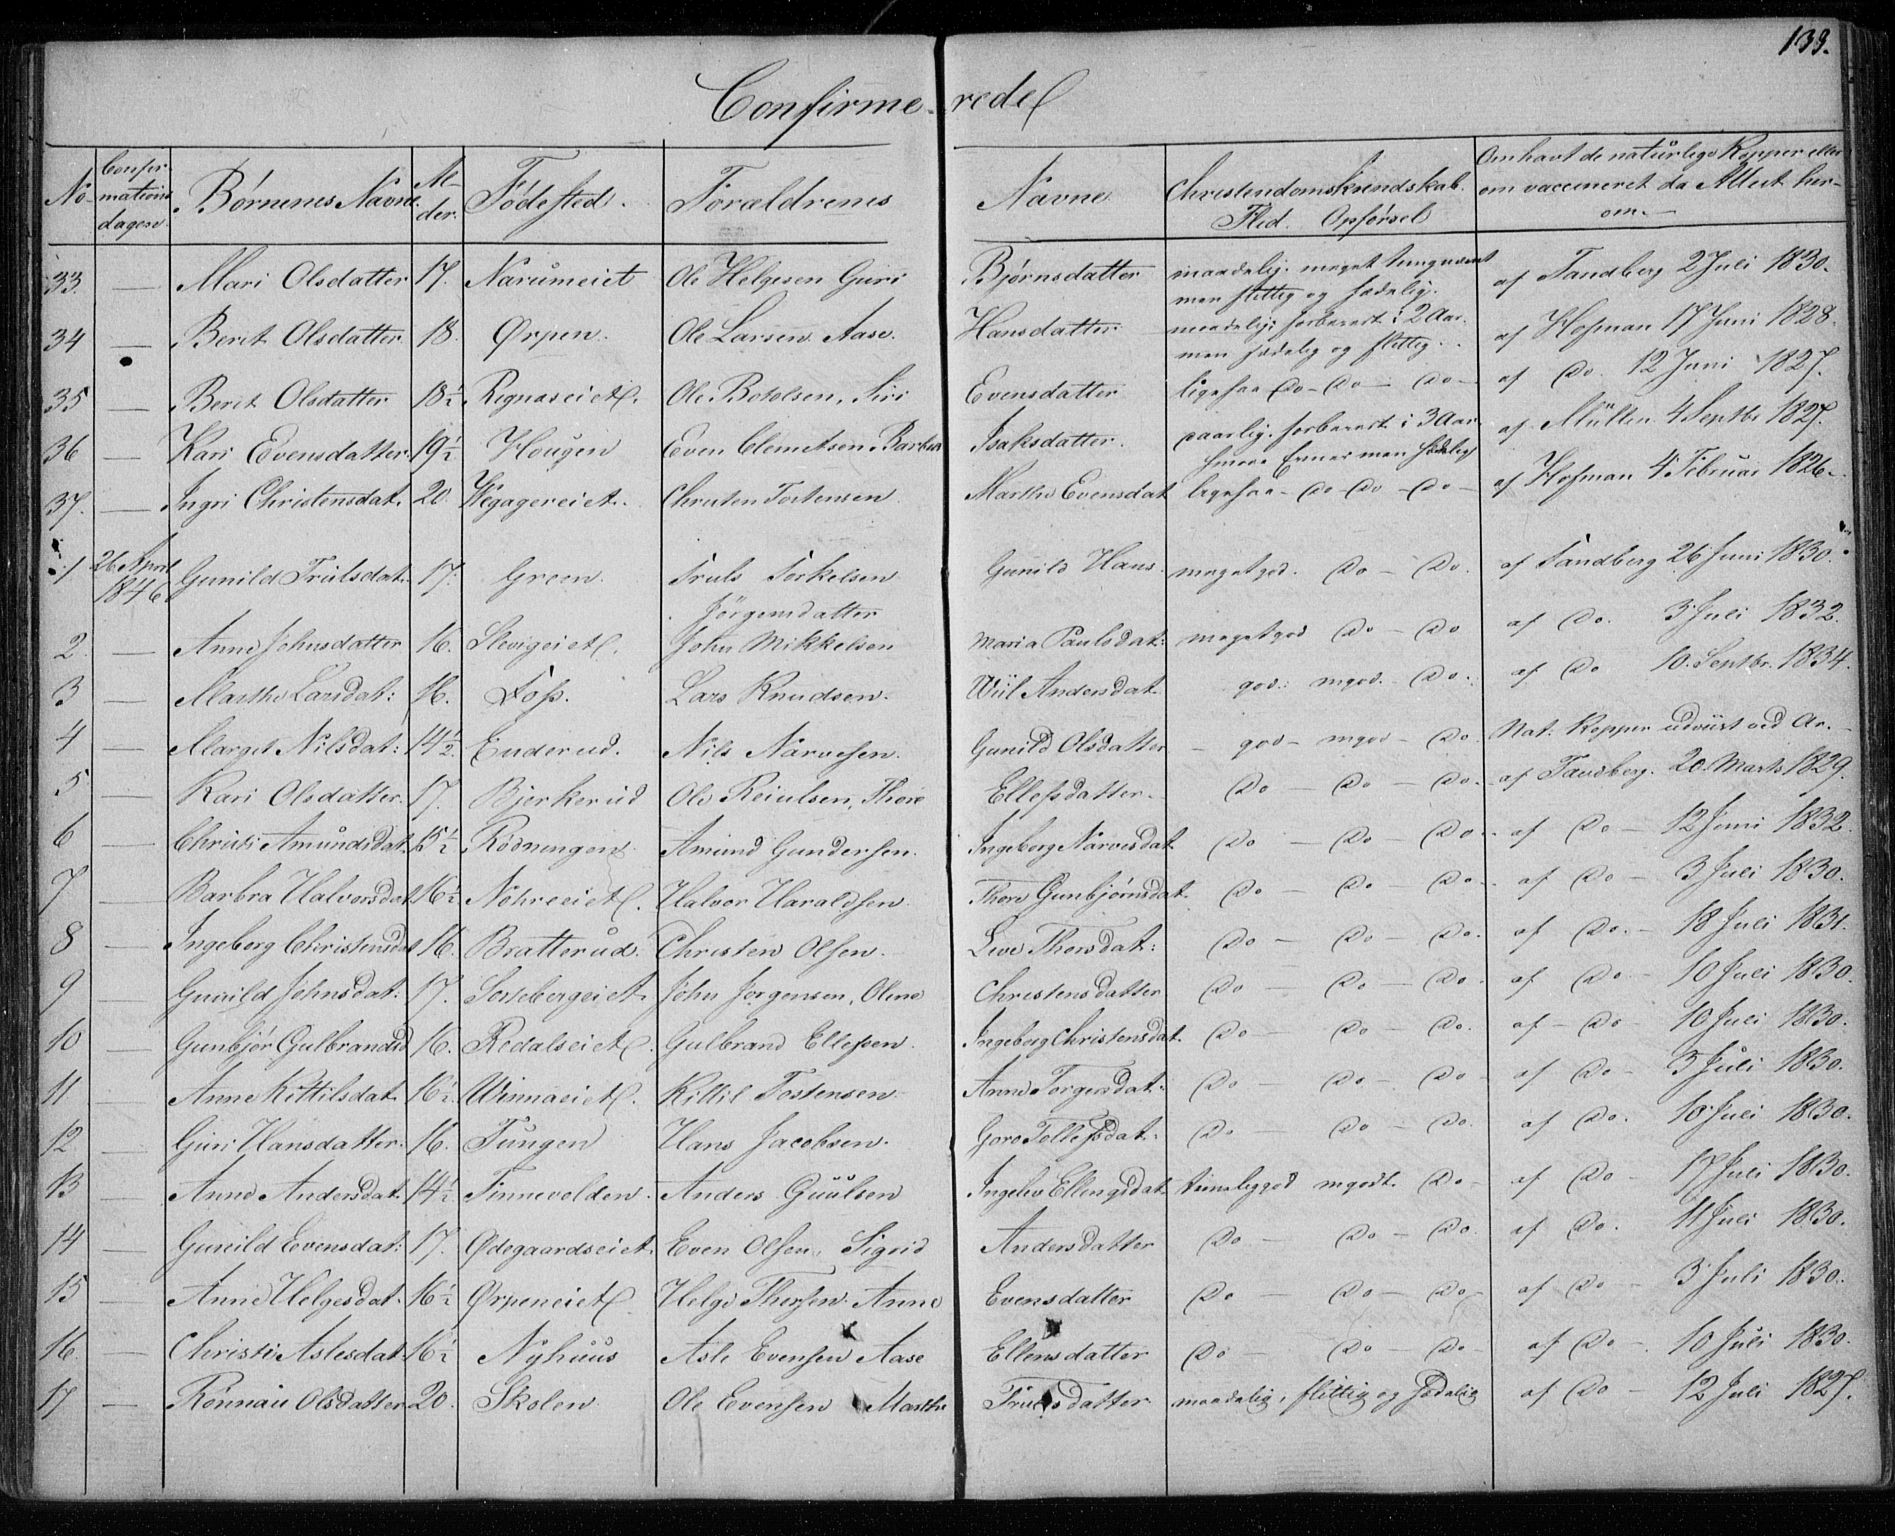 138.
Confirmerede
No
Confirmations dagene
Børnenes Navne
Alder
Fødested
Forældrenes Navne
Christendomskundskab. Flid. Opførsel
Om havt de naturlige Kopper eller om vaccineret da Attest herom
33. — Mari Olsdatter 17. Narumeiet Ole Helgesen Guri Bjørnsdatter maadelig. meget tungnemt men flittig og sædelig. af Tandberg 2 Juli 1830.
34 — Beret Olsdatter 18. Ørpen. Ole Larsen Aase. Hansdatter maadelig; forberedt i 2 Aar. men sædelig og flittig. af Hofman 17 Juni 1828.
35 — Beret Olsdatter 18½ Regnaseiet. Ole Botolsen, Siri Evensdatter ligesaa Do – Do – Do – af Do. 12 Juni 1827.
36 — Kari Evensdatter 19½ Hougen Even Clemetsen Barbra Isaksdatter. maadelig. forberedt i 3 Aar men sædelig af Müller 4 Septbr 1827.
37. — Ingri Christensdat. 20 Wegagereiet. Christen Tostensen Marthe Evensdat ligesaa – Do – Do – Do – af Hofman 4 Februar 1826.
1 26 April 1846 Gunild Trulsdat. 17. Green. Truls Torkelsen Gunild Hans Jørgensdatter meget god. Do – Do. af Tandberg 26 Juni 1830.
2. — Anne Johnsdatter 16. Slevigeiet. John Mikkelsen Maria Paulsdat: meget god Do – Do af Do. 3 Juli 1832.
3 — Marthe Larsdat: 16. Foss. Lars Knudsen. Wiil Andersdat. god. mgod. Do. af Do 10. Septbr. 1834.
4 — Marget Nilsdat: 14½ Enderud. Nils Narvesen. Gunild Olsdatter – god – mgod – Do. Nat. Kopper udviist ved Ar.
5 — Kari Olsdatter. 17. Bjerkerud Ole Reiulsen, Thore Ellefsdatter. Do – Do – Do. af Tandberg. 20. Marts 1829.
6 — Christi Amundsdat. 15½ Rødningen Amund Gundersen. Ingeborg Narvesdat Do – Do Do. af Do – 12 Juni 1832.
7 — Barbra Halvorsdat 16½ Nohreeiet. Halvor Haraldsen. Thore Gunbjørnsdat. Do – Do – Do. af Do – 3 Juli 1830.
8 — Ingeborg Christensdat 16. Bratterud. Christen Olsen. Live Thorsdat: Do – Do – Do. af Do. – 18 Juli 1831.
9 — Gunild Johnsdat: 17. Sortebergeiet. John Jorgensen, Olene Christensdatter Do – Do – Do. af Do – 10 Juli 1830.
10 — Gunbjør Gulbrandsd 16. Redalseiet. Gulbrand Ellefsen. Ingeborg Christensdat. Do – Do – Do. af – Do – 10 Juli 1830.
11 — Anne Kittilsdat. 16½ Winnaeiet. Kittil Tostensen Anne Torgersdat: Do – Do – Do – af Do – 3 Juli 1830.
12. — Guri Hansdatter. 16. Tungen Hans Jacobsen. Goro Tollefsdat. Do – Do – Do. af Do. 10 Juli 1830.
13 — Anne Andersdat. 14½ Finnevolden. Anders Guulsen Ingelev Ellingsdat. temeliggod mgodt. Do – af Do – 17 Juli 1830.
14 — Gunild Evensdat: 17. Ødegaardseiet. Even Olsen. Sigrid Andersdatter Do – Do – Do. af Do. 11 Juli 1830.
15 — Anne Helgesdat. 16½ Ørpeneiet. Helge Thorsen. Anne Evensdatter Do – Do – Do – af Do – 3 Juli 1830.
16. — Christi Aslesdat 16½ Nyhuus Asle Evensen Aase Ellensdatter Do – Do – Do – af Do – 10 Juli 1830.
17 — Rønnau Olsdatter 20. Skolen Ole Evensen Marthe Trulsdatter maadelig, flittig og sædelig af Do – 12 Juli 1827.